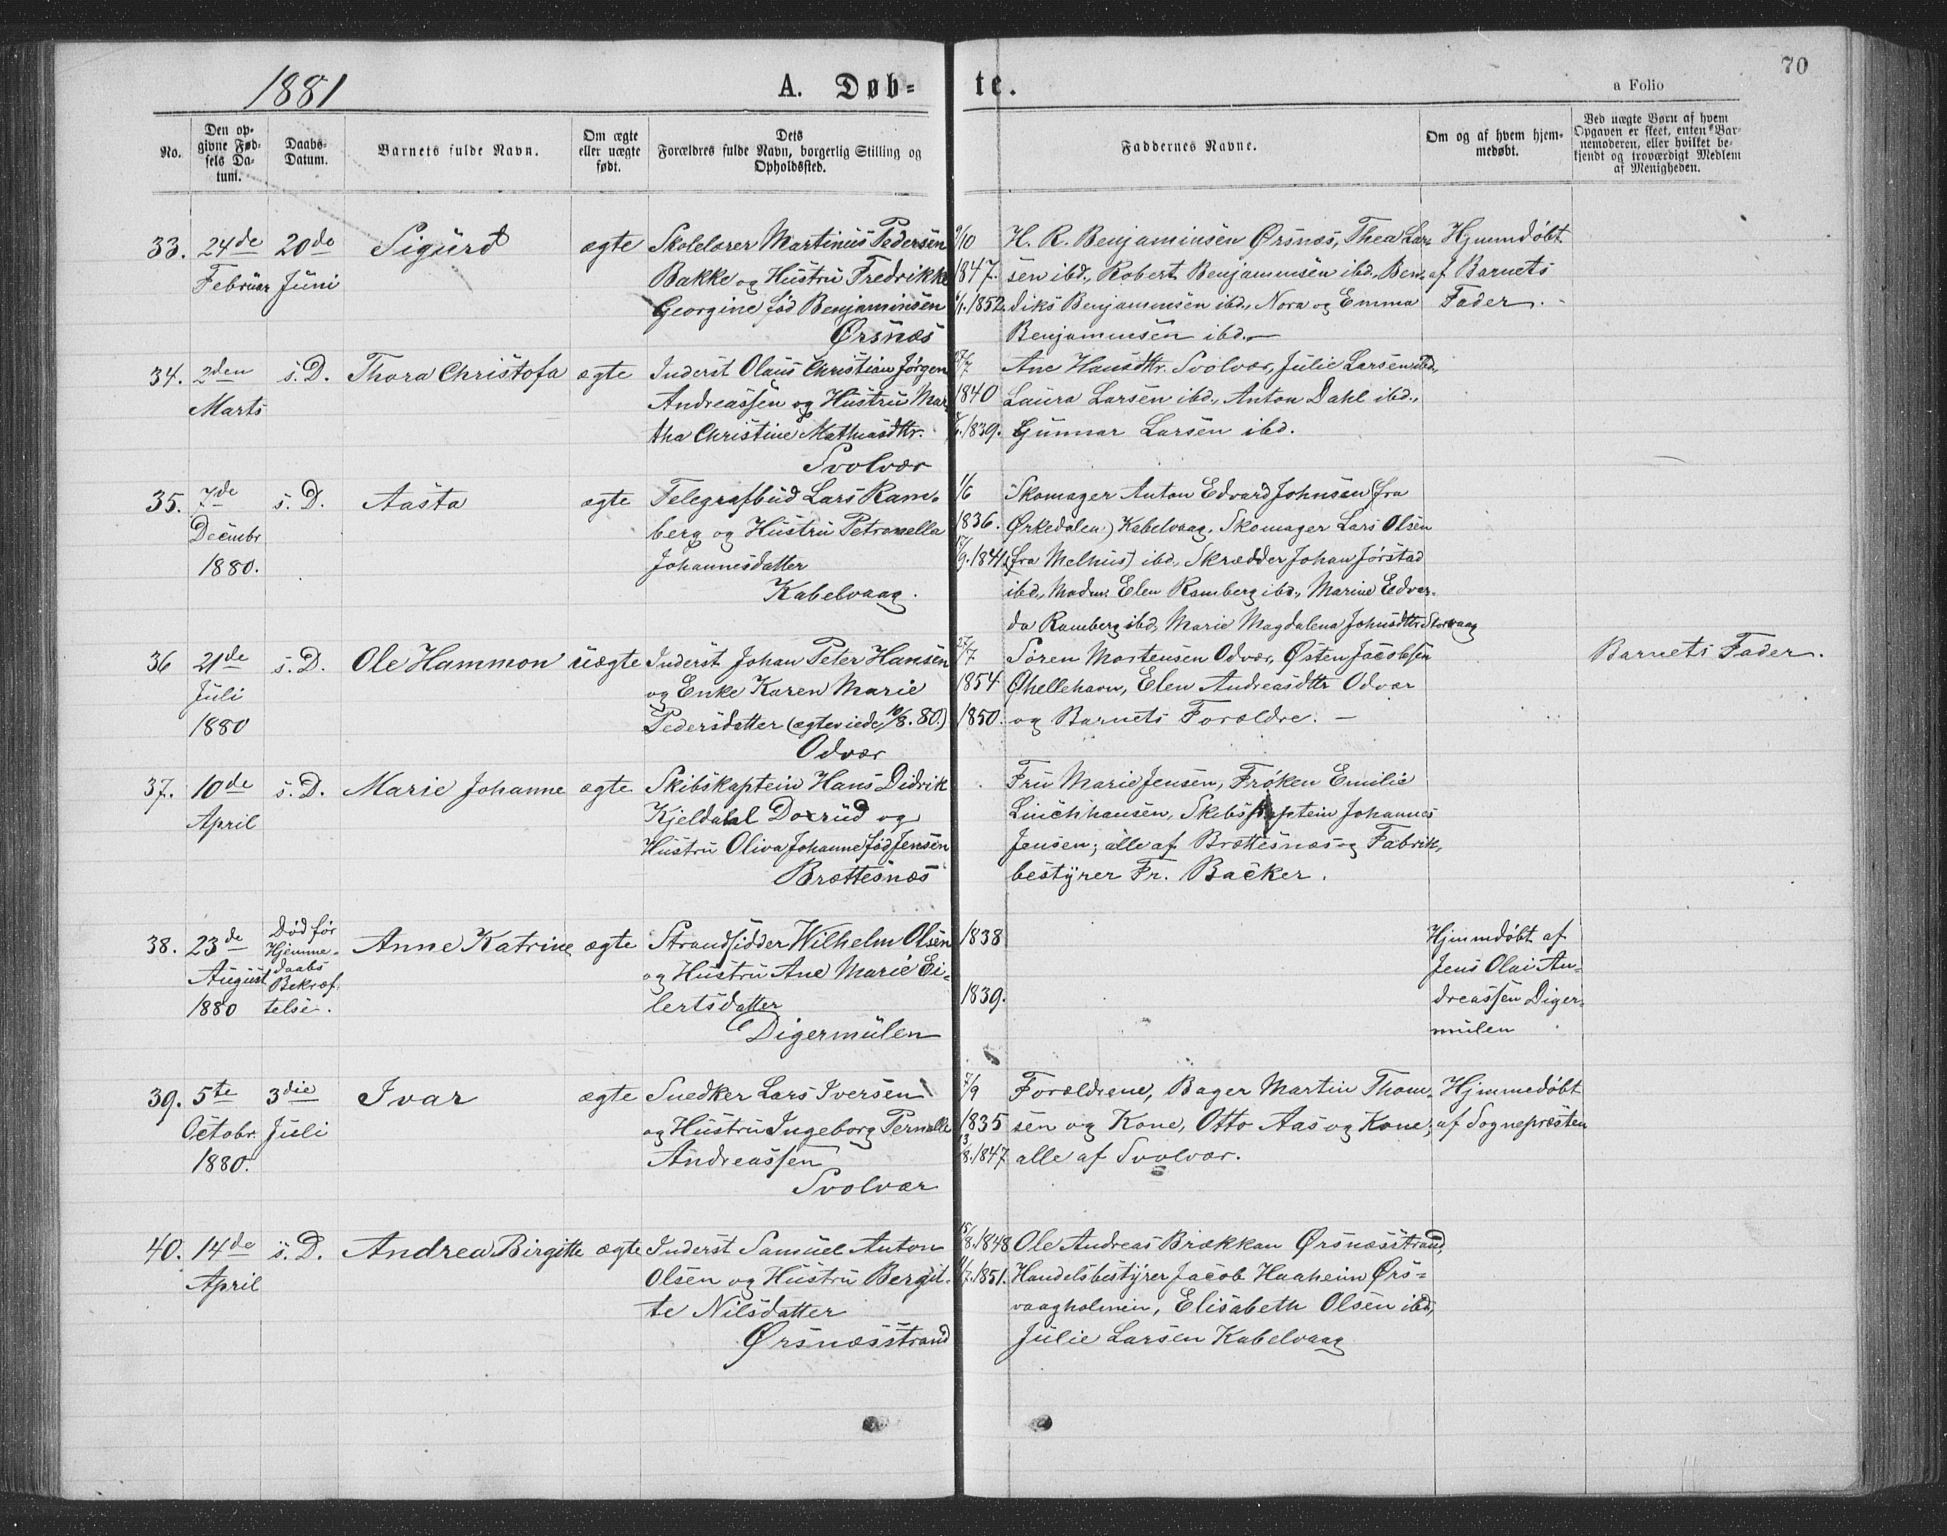 1881
A. Døb-
te.
70
a Folio
No.
Den op-
givne Fød-
sels Da-
tum.
Daabs-
Datum.
Barnets fulde Navn.
Om ægte
eller uægte
født.
Dets
Forældres fulde Navn, borgerlig Stilling og
Opholdssted.
Faddernes Navne.
Om og af hvem hjem-
medøbt.
Ved uægte Børn af hvem
Opgaven er skeet, enten Bar-
nemoderen, eller hvilket be-
kjendt og troværdigt Medlem
af Menigheden.
33. 24de 20de Sigurd ægte Skolelærer Martinus Pedersen 9/10 H. R. Benjaminsen Ørsnæs, Thea Lar- Hjemmdøbt
Februar Juni Bakke og Hustru Fredrikke 1847. sen ibd., Robert Benjaminsen ibd., Ben- af Barnets
Georgine fød Benjaminsen 1852. diks Benjaminsen ibd., Nora og Emma Fader.
Ørsnæs Benjaminsen ibd.
34. 2den s. D. Thora Christofa ægte Inderst Olaus Christian Jørgen Ane Hansdtr. Svolvær, Julie Larsen ibd.,
Marts Andreassen og Hustru Mar- 1840 Laura Larsen ibd., Anton Dahl ibd.,
tha Christine Mathiasdtr. 1839. Gunnar Larsen ibd.
Svolvær
35. 7de s. D. Aasta ægte Telegrafbud Lars Ram- 1/6 Skomager Anton Edvard Johnsen (fra
Decembr berg og Hustru Petronella 1836. Ørkedalen) Kabelvaag, Skomager Lars Olsen
1880. Johannesdatter 1841. (fra Melhus) ibd., Skrædder Johan Jørstad
Kabelvaag. ibd., Madm. Elen Ramberg ibd., Marine Edvar-
da Ramberg ibd., Marie Magdalena Johnsdtr. Storvaag
36 21de s. D. Ole Hammon uægte Inderst Johan Peter Hansen 27/7 Søren Mortensen Odvær, Østen Jacobsen Barnets Fader.
Juli og Enke Karen Marie 1854 Øhellehavn, Elen Andreasdtr Odvær
1880 Pedersdatter (ægteviede 10/8. 80.) 1850. og Barnets Forældre.
Odvær
37. 10de s. D. Marie Johanne ægte Skibskaptein Hans Didrik Fru Marie Jensen, Frøken Emilie
April Kjeldahl Doxrud og Linchhausen, Skibskaptein Johannes
Hustru Oliva Johanne fød Jensen Jensen; alle af Brættesnæs og Fabrik-
Brættesnæs bestyrer Fr. Bäcker.
38. 23de Død før Anne Katrine ægte Strandsidder Wilhelm Olsen 1838 Hjemmdøbt af
August Hjemme- og Hustru Ane Marie Ei- Jens Olai An-
1880 daabs Bekræf- lertsdatter 1839. dreassen Diger-
telse. Digermulen mulen
39. 5te 3die Ivar ægte Snedker Lars Iversen 7/9 Forældrene, Bager Martin Thom- Hjemmedøbt
Octobr. Juli og Hustru Ingeborg Pernelle 1835 sen og Kone, Otto Aas og Kone; af Sognepræsten
1880. Andreassen 13/8. 1847 alle af Svolvær.
Svolvær
40. 14de s. D. Andrea Birgitte ægte Inderst Samuel Anton 15/8. 1848 Ole Andreas Brækkan Ørsnæsstrand,
April Olsen og Hustru Bergit- 1851. Handelsbestyrer Jacob Haaheim Ørs-
te Nilsdatter vaagholmen, Elisabeth Olsen ibd.,
Ørsnæsstrand Julie Larsen Kabelvaag